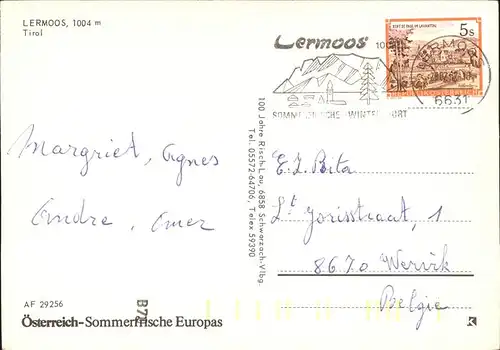 LERMOOS, 1004 m
Tirol
Lermoos
5s
6631
SOMMERFRISCHE WINTERSPORT
100 Jahre Risch-Lau, 6858 Schwarzach-Vlbg.
Tel. 05572-64706, Telex 59390
Margriet, Agnes
Andre, Omer
E.Z. Bita
St Jorisstraat, 1
8670 Wervik
Belgie
AF 29256
B74
Österreich-Sommerfrische Europas